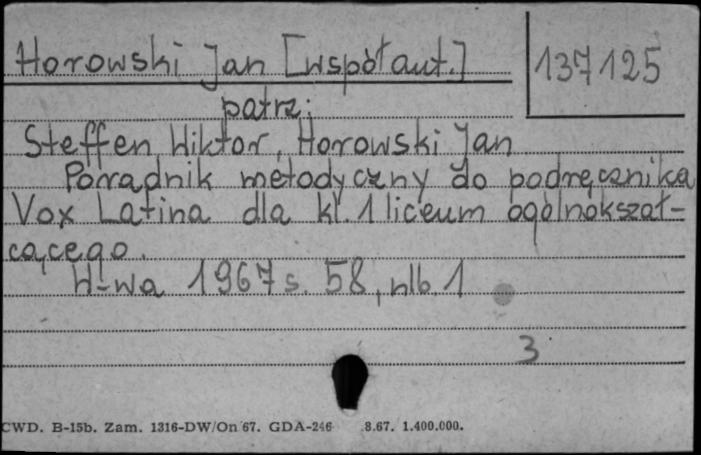 Horowski Jan [współaut.]
137125
patrz:
Steffen Wiktor, Horowski Jan
Poradnik metodyczny do podręcznika
Vox Latina dla kl. 1 liceum ogólnokształ-
cącego.
W-wa 1967 s. 58, nlb. 1
3
CWD. B-15b. Zam. 1316-DW/On 67. GDA-246 8.67. 1.400.000.